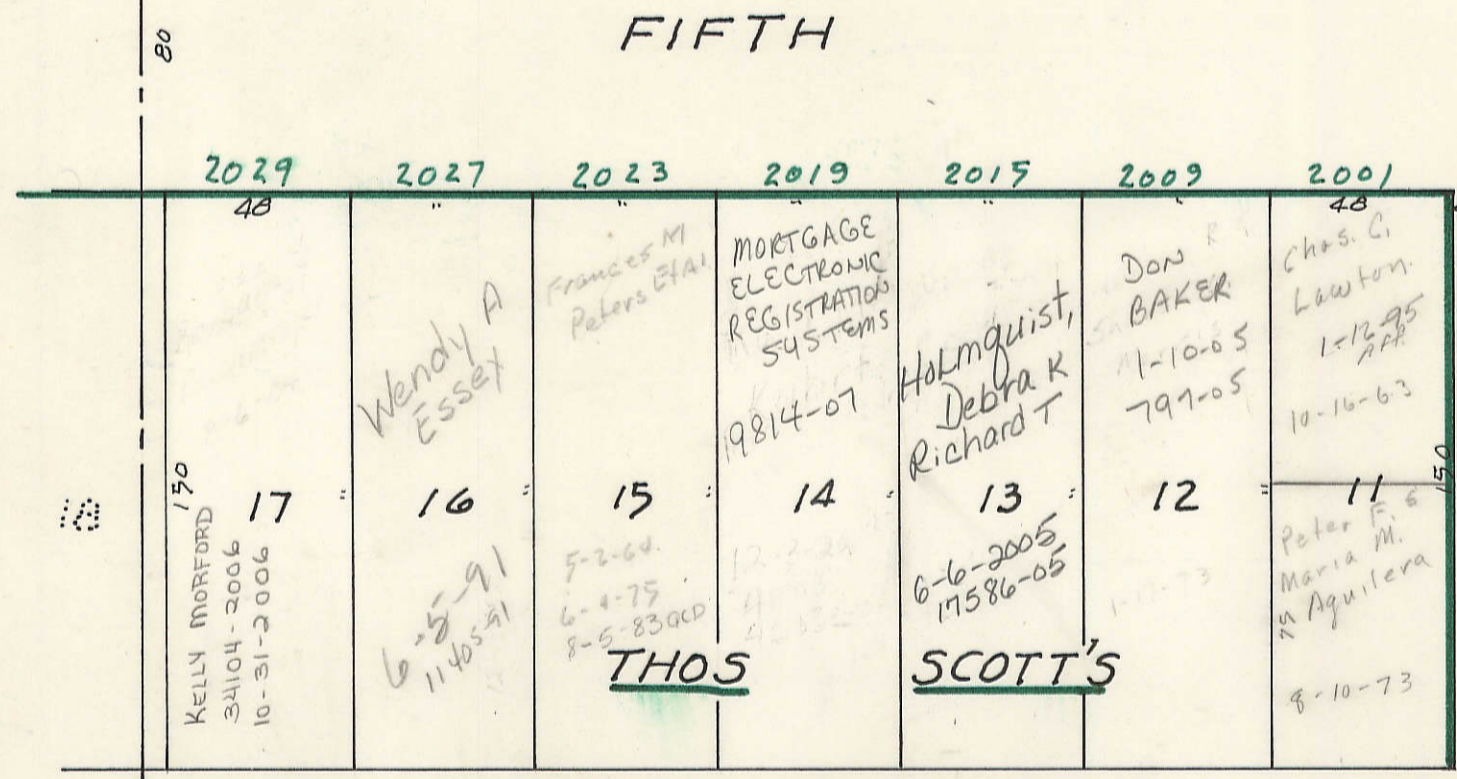 FIFTH
80
2029 2027 2023 2019 2015 2009 2001
48 " " " " " 48
KELLY MORFORD
34104-2006
10-31-2006
150
17 "
Wendy A
Essex
16 "
6-5-91
Frances M
Peters EtAl
15 "
5-2-64
6-4-75
8-5-83 QCD
MORTGAGE
ELECTRONIC
REGISTRATION
SYSTEMS
19814-07
14 "
Holmquist,
Debra K
Richard T
13 "
6-6-2005
17586-05
DON
BAKER
1-10-05
797-05
12 "
Chas. C.
Lawton
1-12-95
Aff.
10-16-63
11
150
Peter F. &
Maria M.
Aguilera
75
8-10-73
THOS SCOTT'S